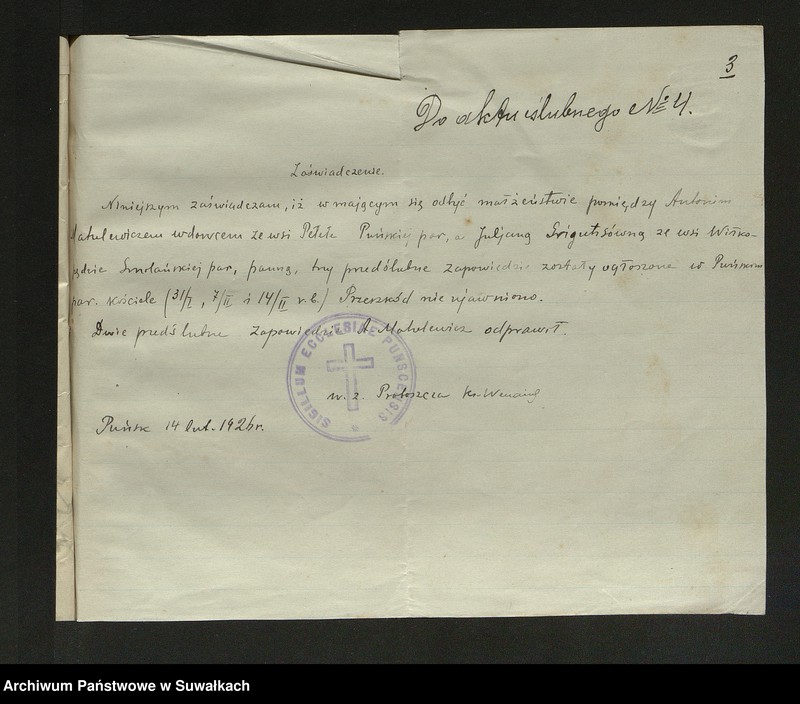 3
Do aktu ślubnego № 4.
Zaświadczenie.
Niniejszym zaświadczam, iż w mającym się odbyć małżeństwie pomiędzy Antonim
Matulewiczem wdowcem ze wsi Pełele Puńskiej par, a Juljaną Grigutisówną ze wsi Wiłko-
par, panną, trzy przedślubne zapowiedzie zostały ogłoszone w Puńskim
par. kościele (31/I, 7/II i 14/II r.b.) Przeszkód nie ujawniono.
Dwie predślubne zapowiedzie A Matulewicz odprawił.
SIGILLUM ECCLESIAE PUNSCENSIS
w. z. Proboszcza Ks.
Puńsk 14 Lut. 1926 r.
Archiwum Państwowe w Suwałkach